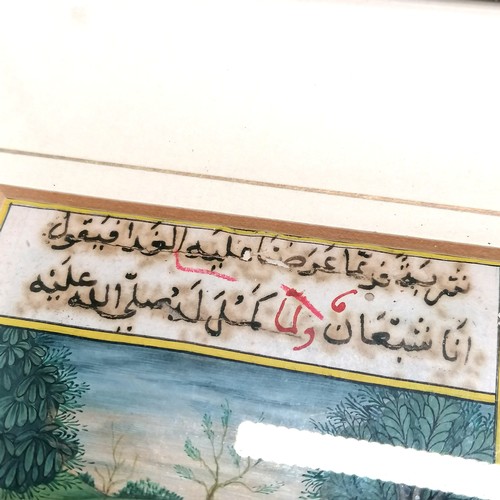 شربةً فربّما عَرَضنا عليه الغدا فيقول
انا شبعان ولمّا كمل له صلى الله عليه